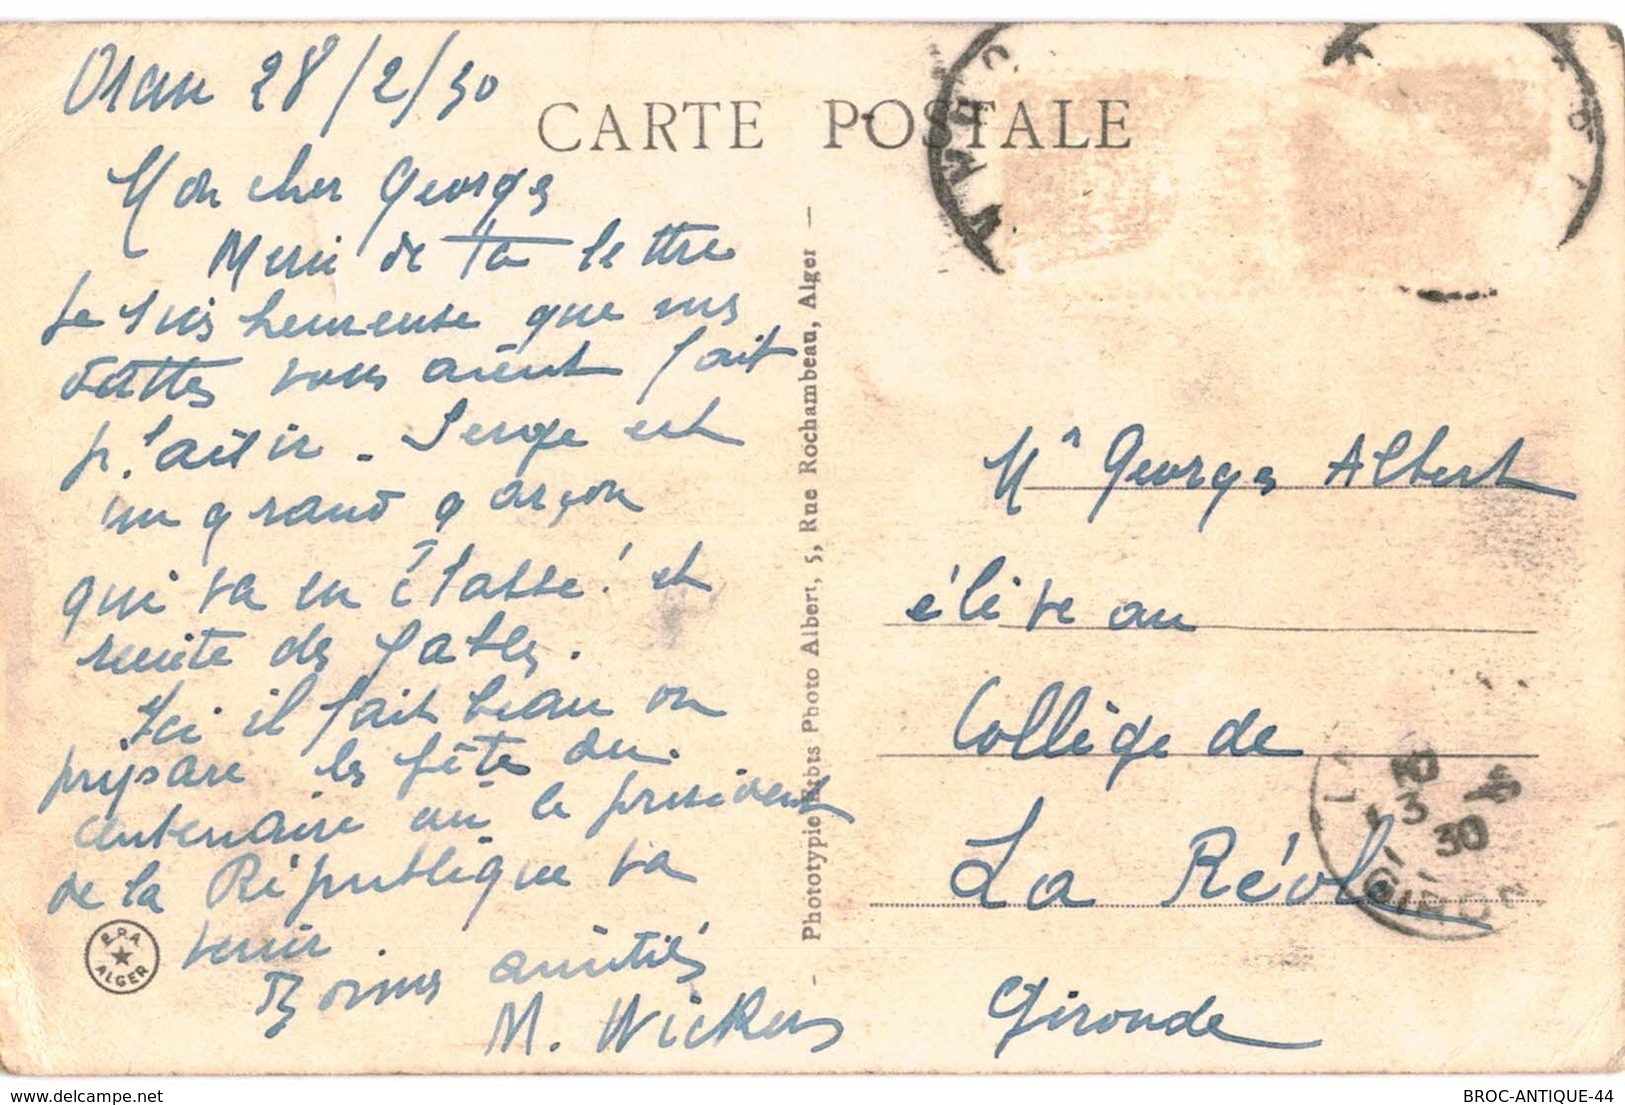 Oran 28/2/30
CARTE POSTALE
Mon cher Georges
Merci de ta lettre
je suis heureuse que nos
dattes vous aient fait
plaisir - Serge est
un grand garçon
qui va en classe! et
récite des fables.
Ici il fait beau on
prépare les fêtes du
centenaire où le président
de la République va
venir
Bonnes amitiés
M. Wickers
E.P.A.
ALGER
Phototypie Etbts Photo Albert, 5, Rue Rochambeau, Alger
Mr Georges Albert
élève au
Collège de
La Réole
Gironde
10
13
30
GIRON
delcampe.net
BROC-ANTIQUE-44